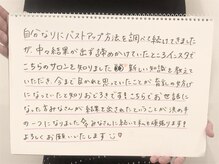 自分なりにバストアップ方法を調べて続けてきました
が、中々結果が出ず諦めかけていたところインスタで
こちらのサロンを知りました 新しい知識を教えて
いただき、今まで良かれと思っていたことが育乳の妨げに
なっていたと知りおどろきです!! こちらでお世話に
なったみなさんが結果を出されたということが決め手
の一つになりました みなさんに続いて私も頑張ります!
よろしくお願いいたします